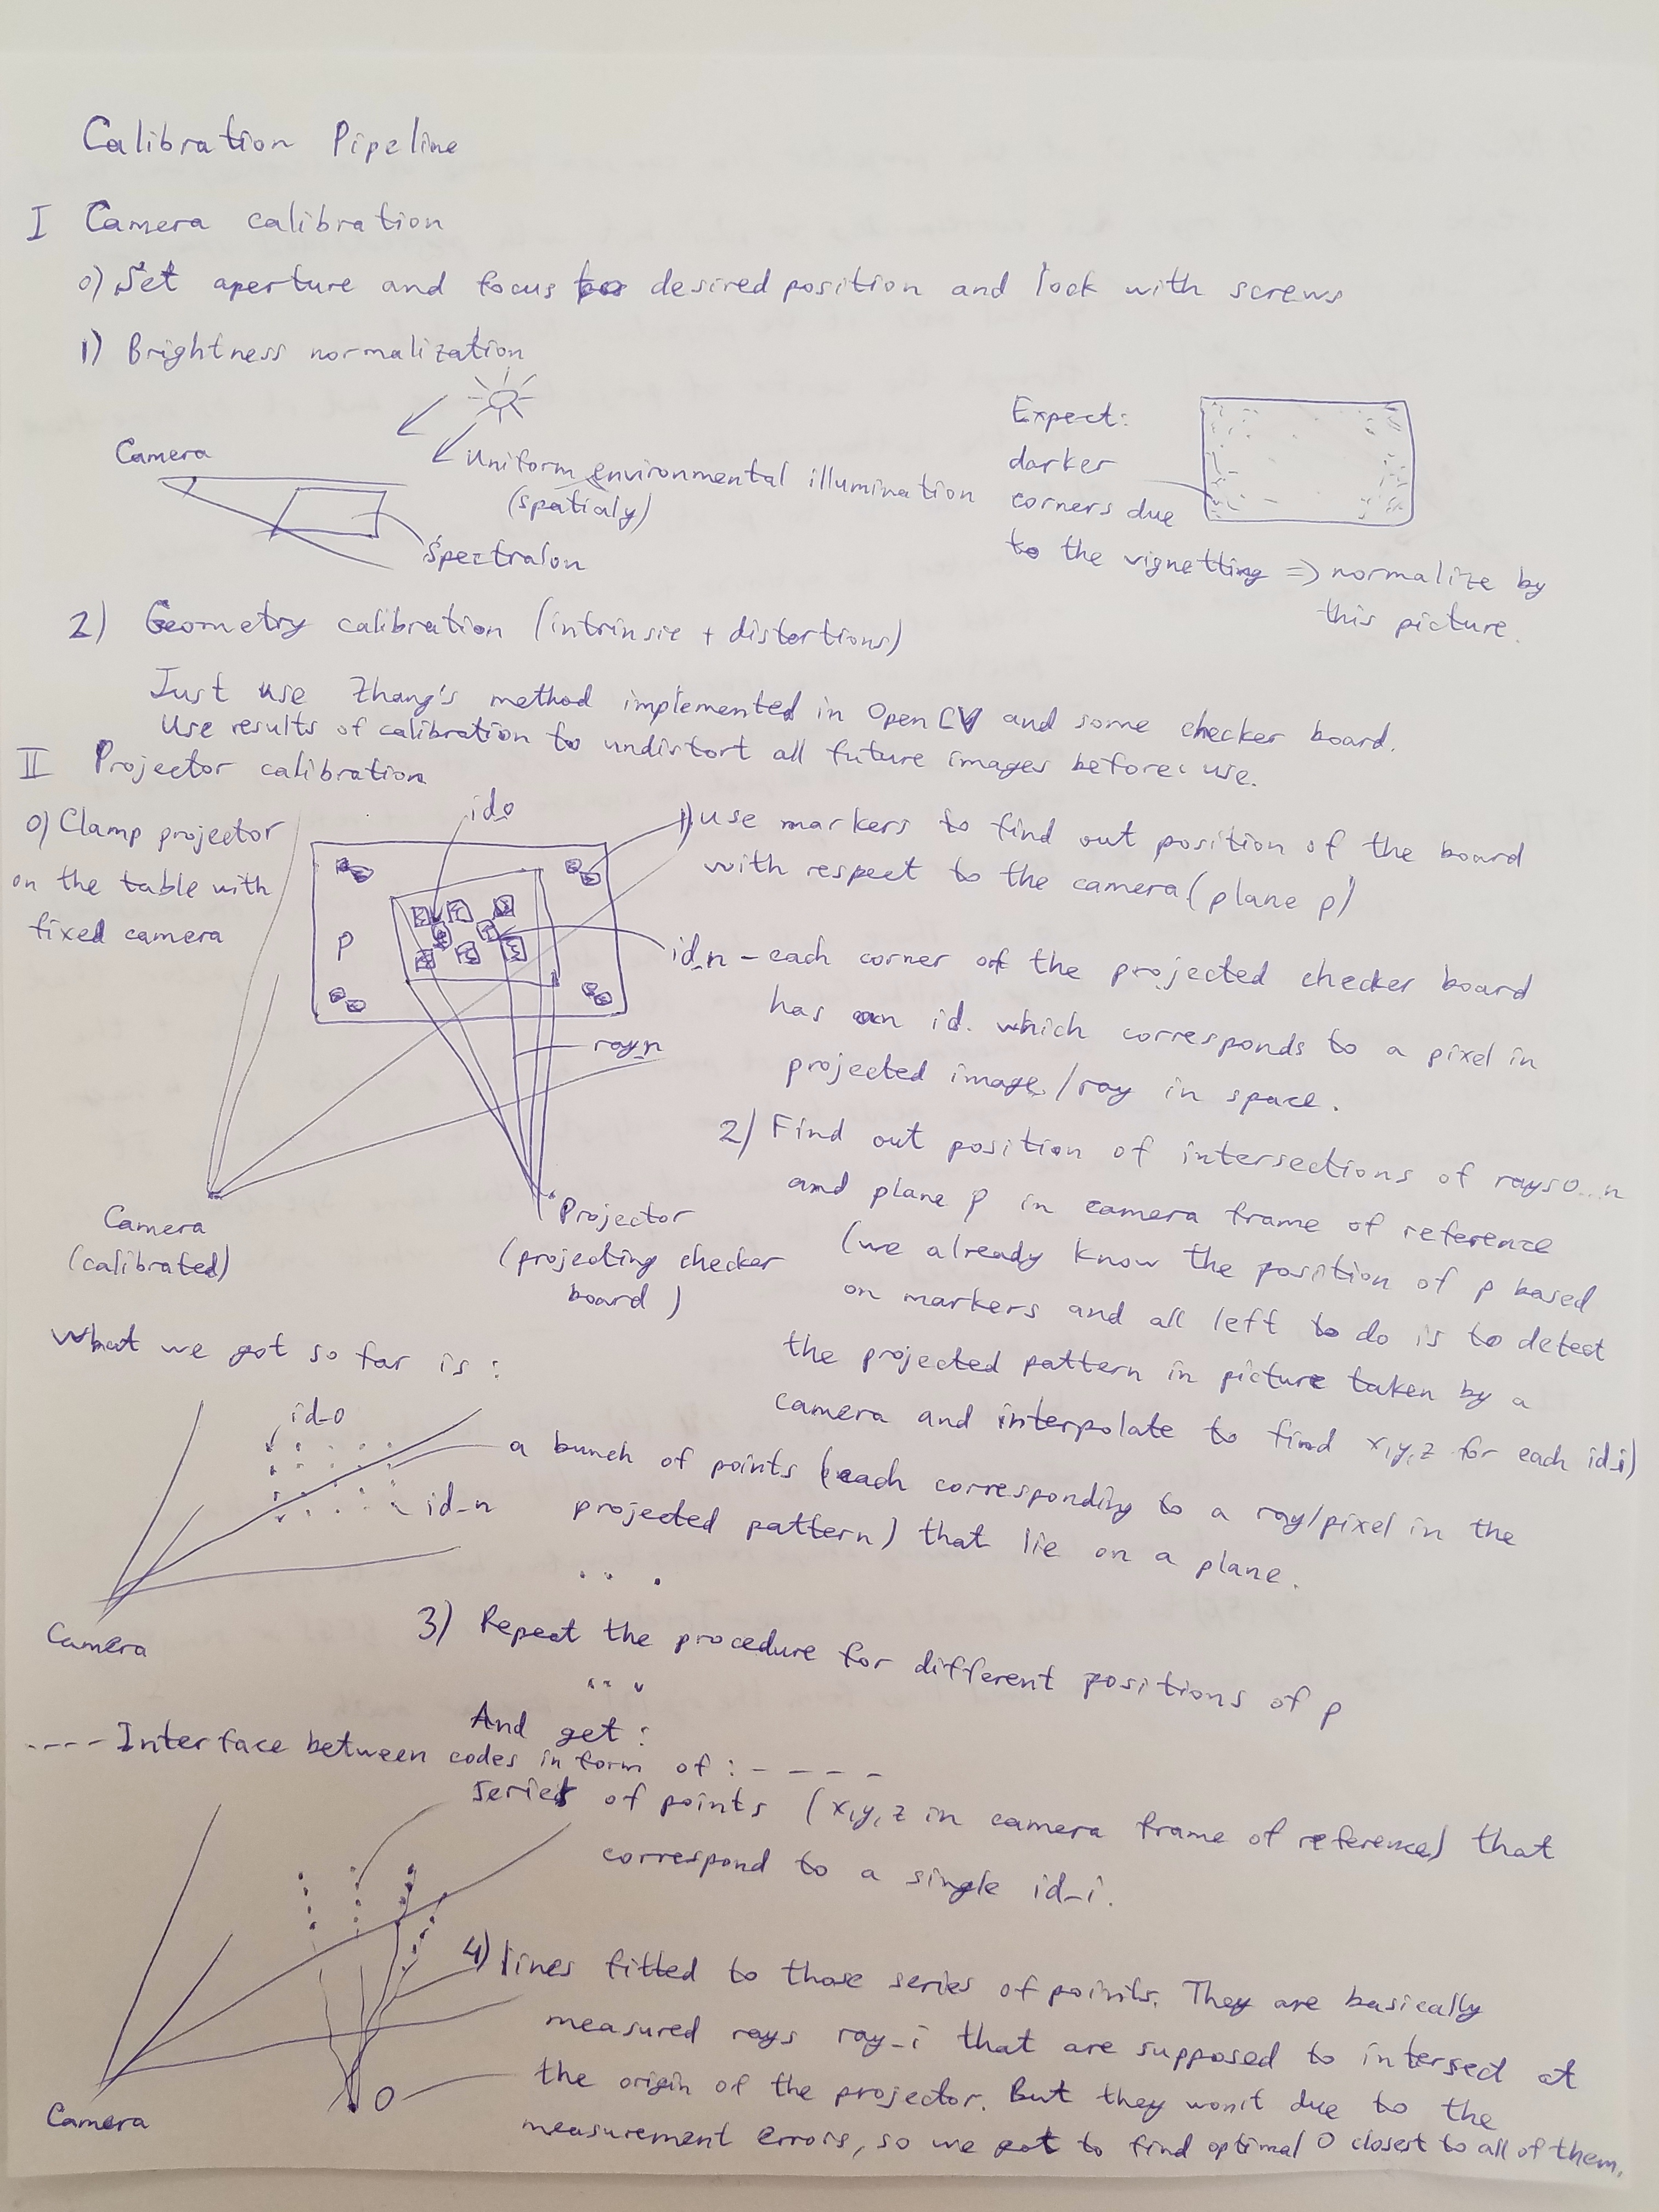 Calibration Pipeline
I Camera calibration
0) Set aperture and focus to desired position and lock with screws
1) Brightness normalization
Camera
Uniform environmental illumination
(spatialy)
Spectralon
Expect:
darker
corners due
to the vignetting => normalize by
this picture.
2) Geometry calibration (intrinsic + distortions)
Just use Zhang's method implemented in OpenCV and some checker board.
Use results of calibration to undistort all future images before use.
II Projector calibration
0) Clamp projector
on the table with
fixed camera
id_0
p
1) use markers to find out position of the board
with respect to the camera (plane p)
id_n - each corner of the projected checker board
has an id. which corresponds to a pixel in
projected image./ray in space.
ray_n
Camera
(calibrated)
Projector
(projecting checker
board)
2) Find out position of intersections of rays 0...n
and plane p in camera frame of reference
(we already know the position of p based
on markers and all left to do is to detect
the projected pattern in picture taken by a
camera and interpolate to find x,y,z for each id_i)
What we got so far is:
id_0
id_n
Camera
a bunch of points (each corresponding to a ray/pixel in the
projected pattern) that lie on a plane.
...
3) Repeat the procedure for different positions of p
...
And get:
---- Interface between codes in form of: - - - -
series of points (x,y,z in camera frame of reference) that
correspond to a single id_i.
4) lines fitted to those series of points. They are basically
measured rays ray_i that are supposed to intersect at
the origin of the projector. But they won't due to the
measurement errors, so we got to find optimal O closest to all of them.
O
Camera